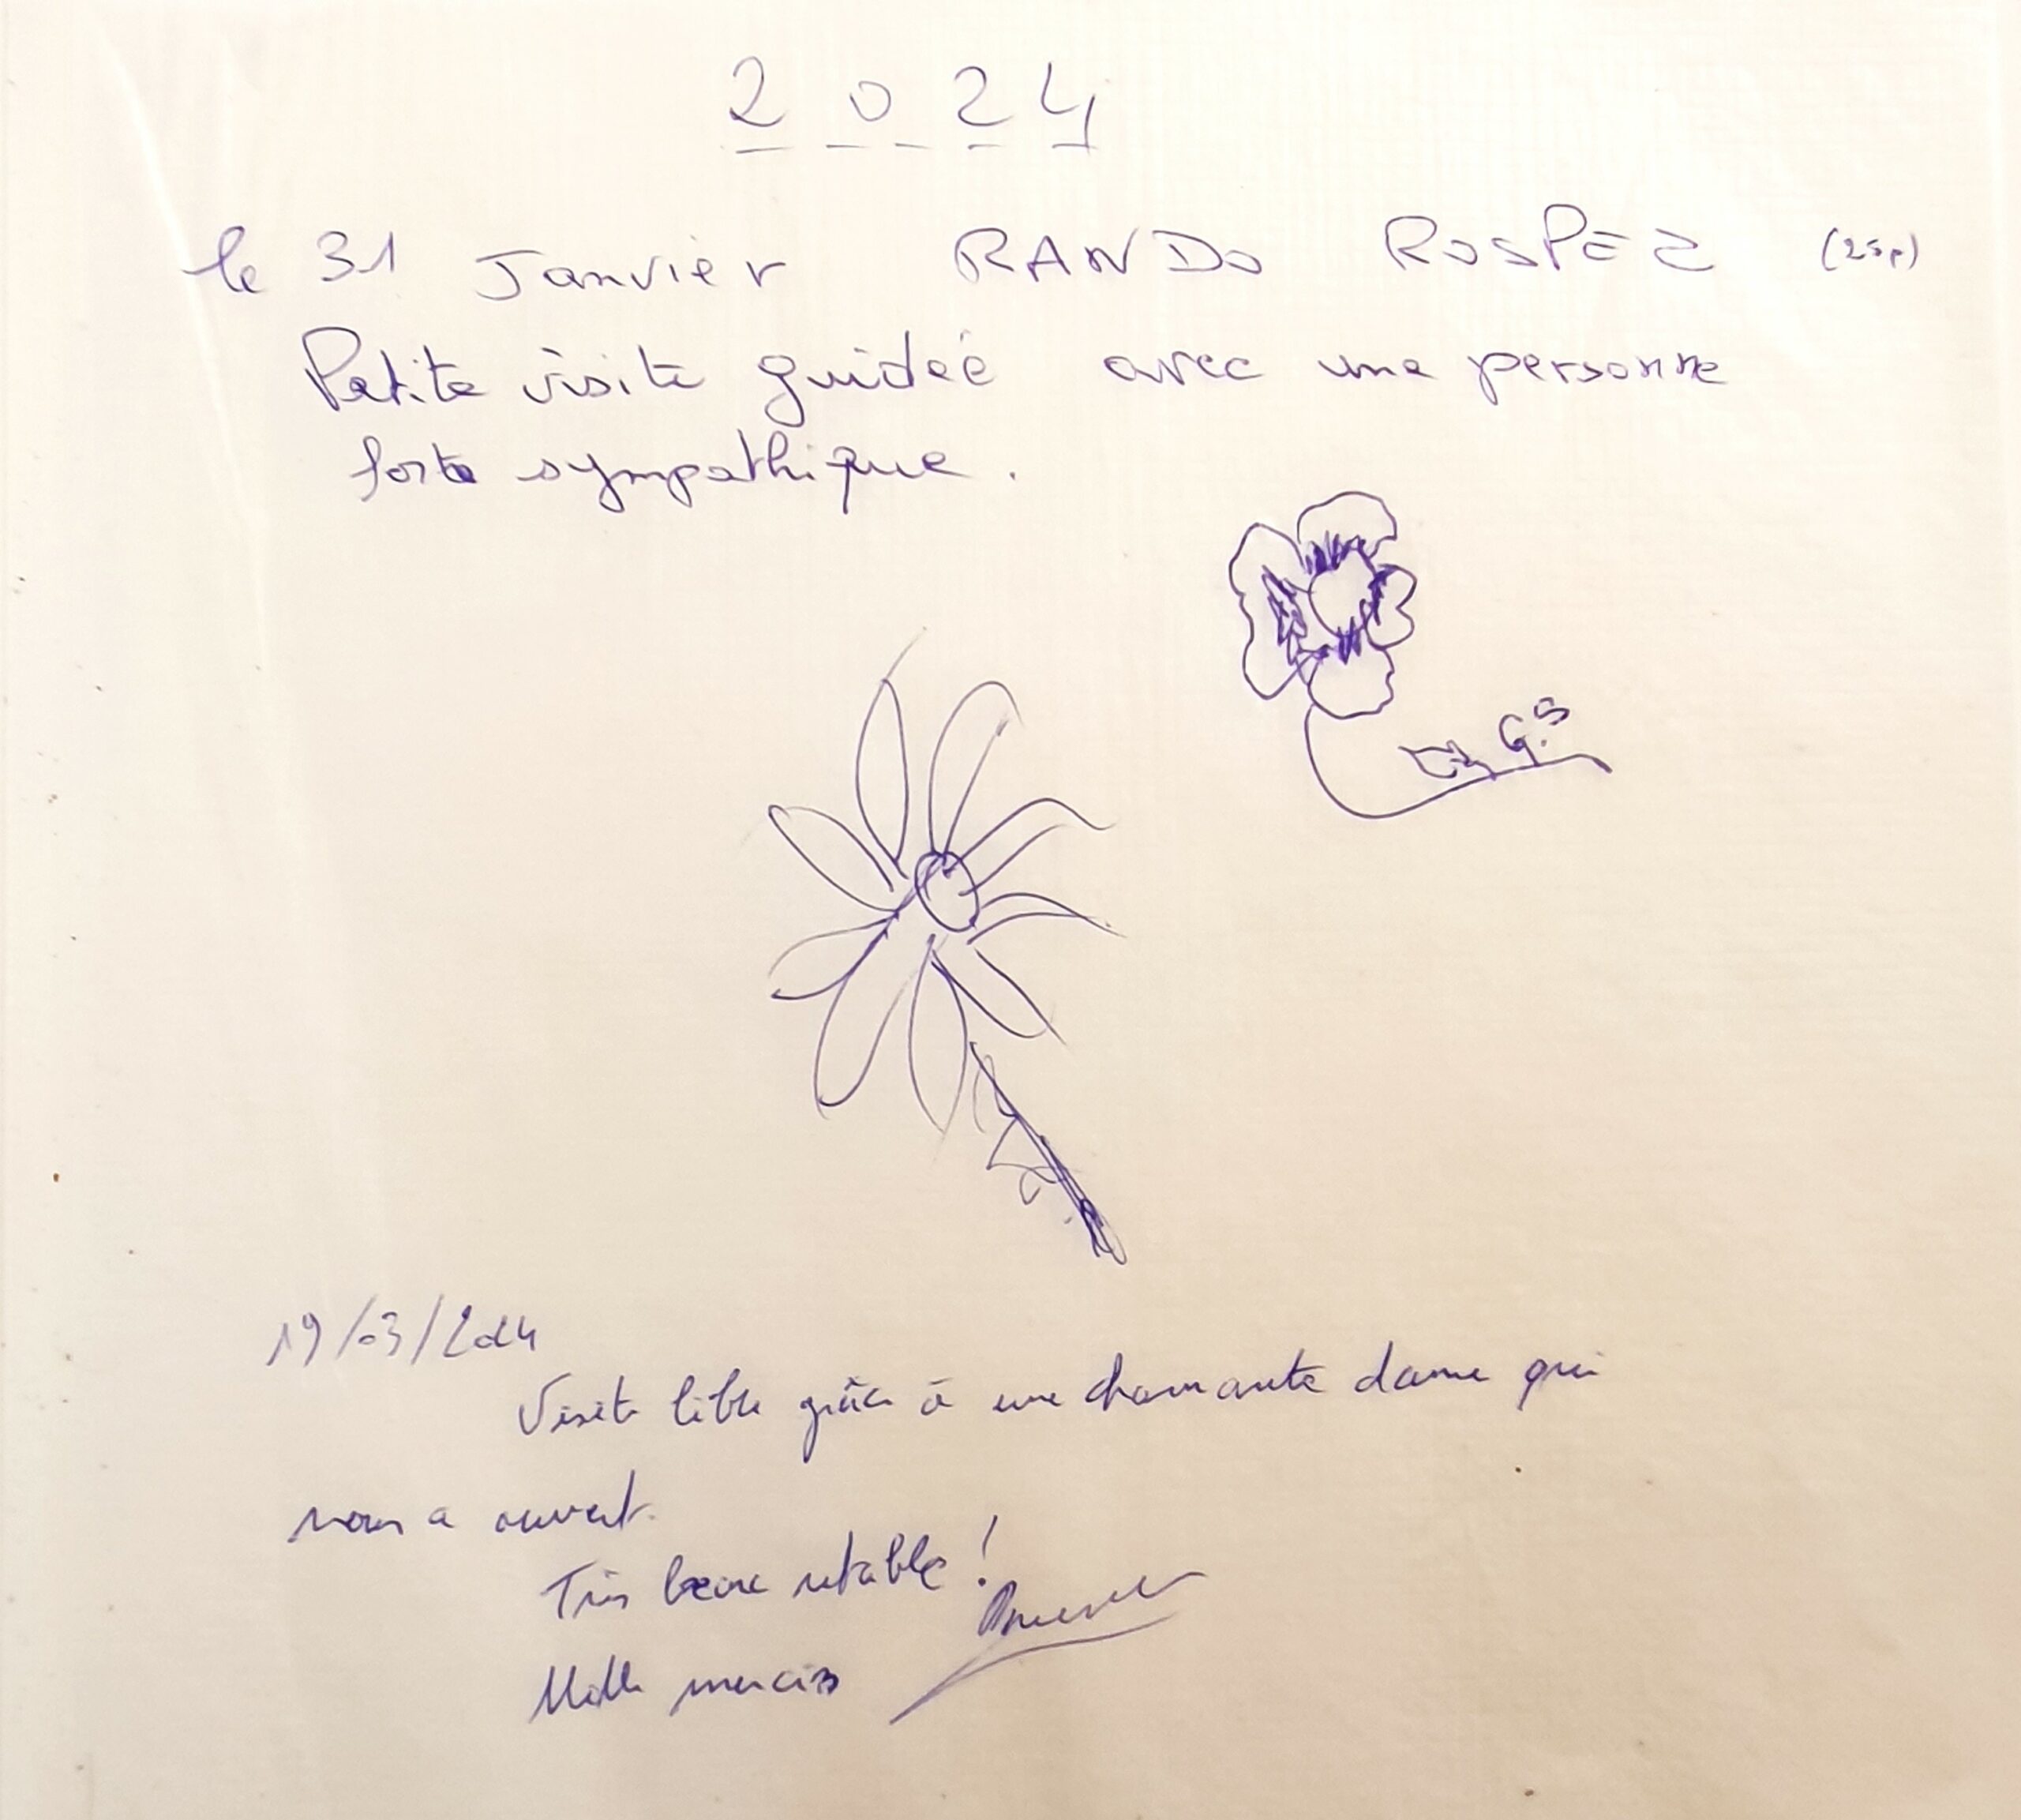 2024
le 31 Janvier RANDO ROSPEZ (25p)
Petite visite guidée avec une personne
forte sympathique.
G.S
19/03/2024
Visite libre grâce à une charmante dame qui
nous a ouvert.
Très beau retable !
Mille mercis